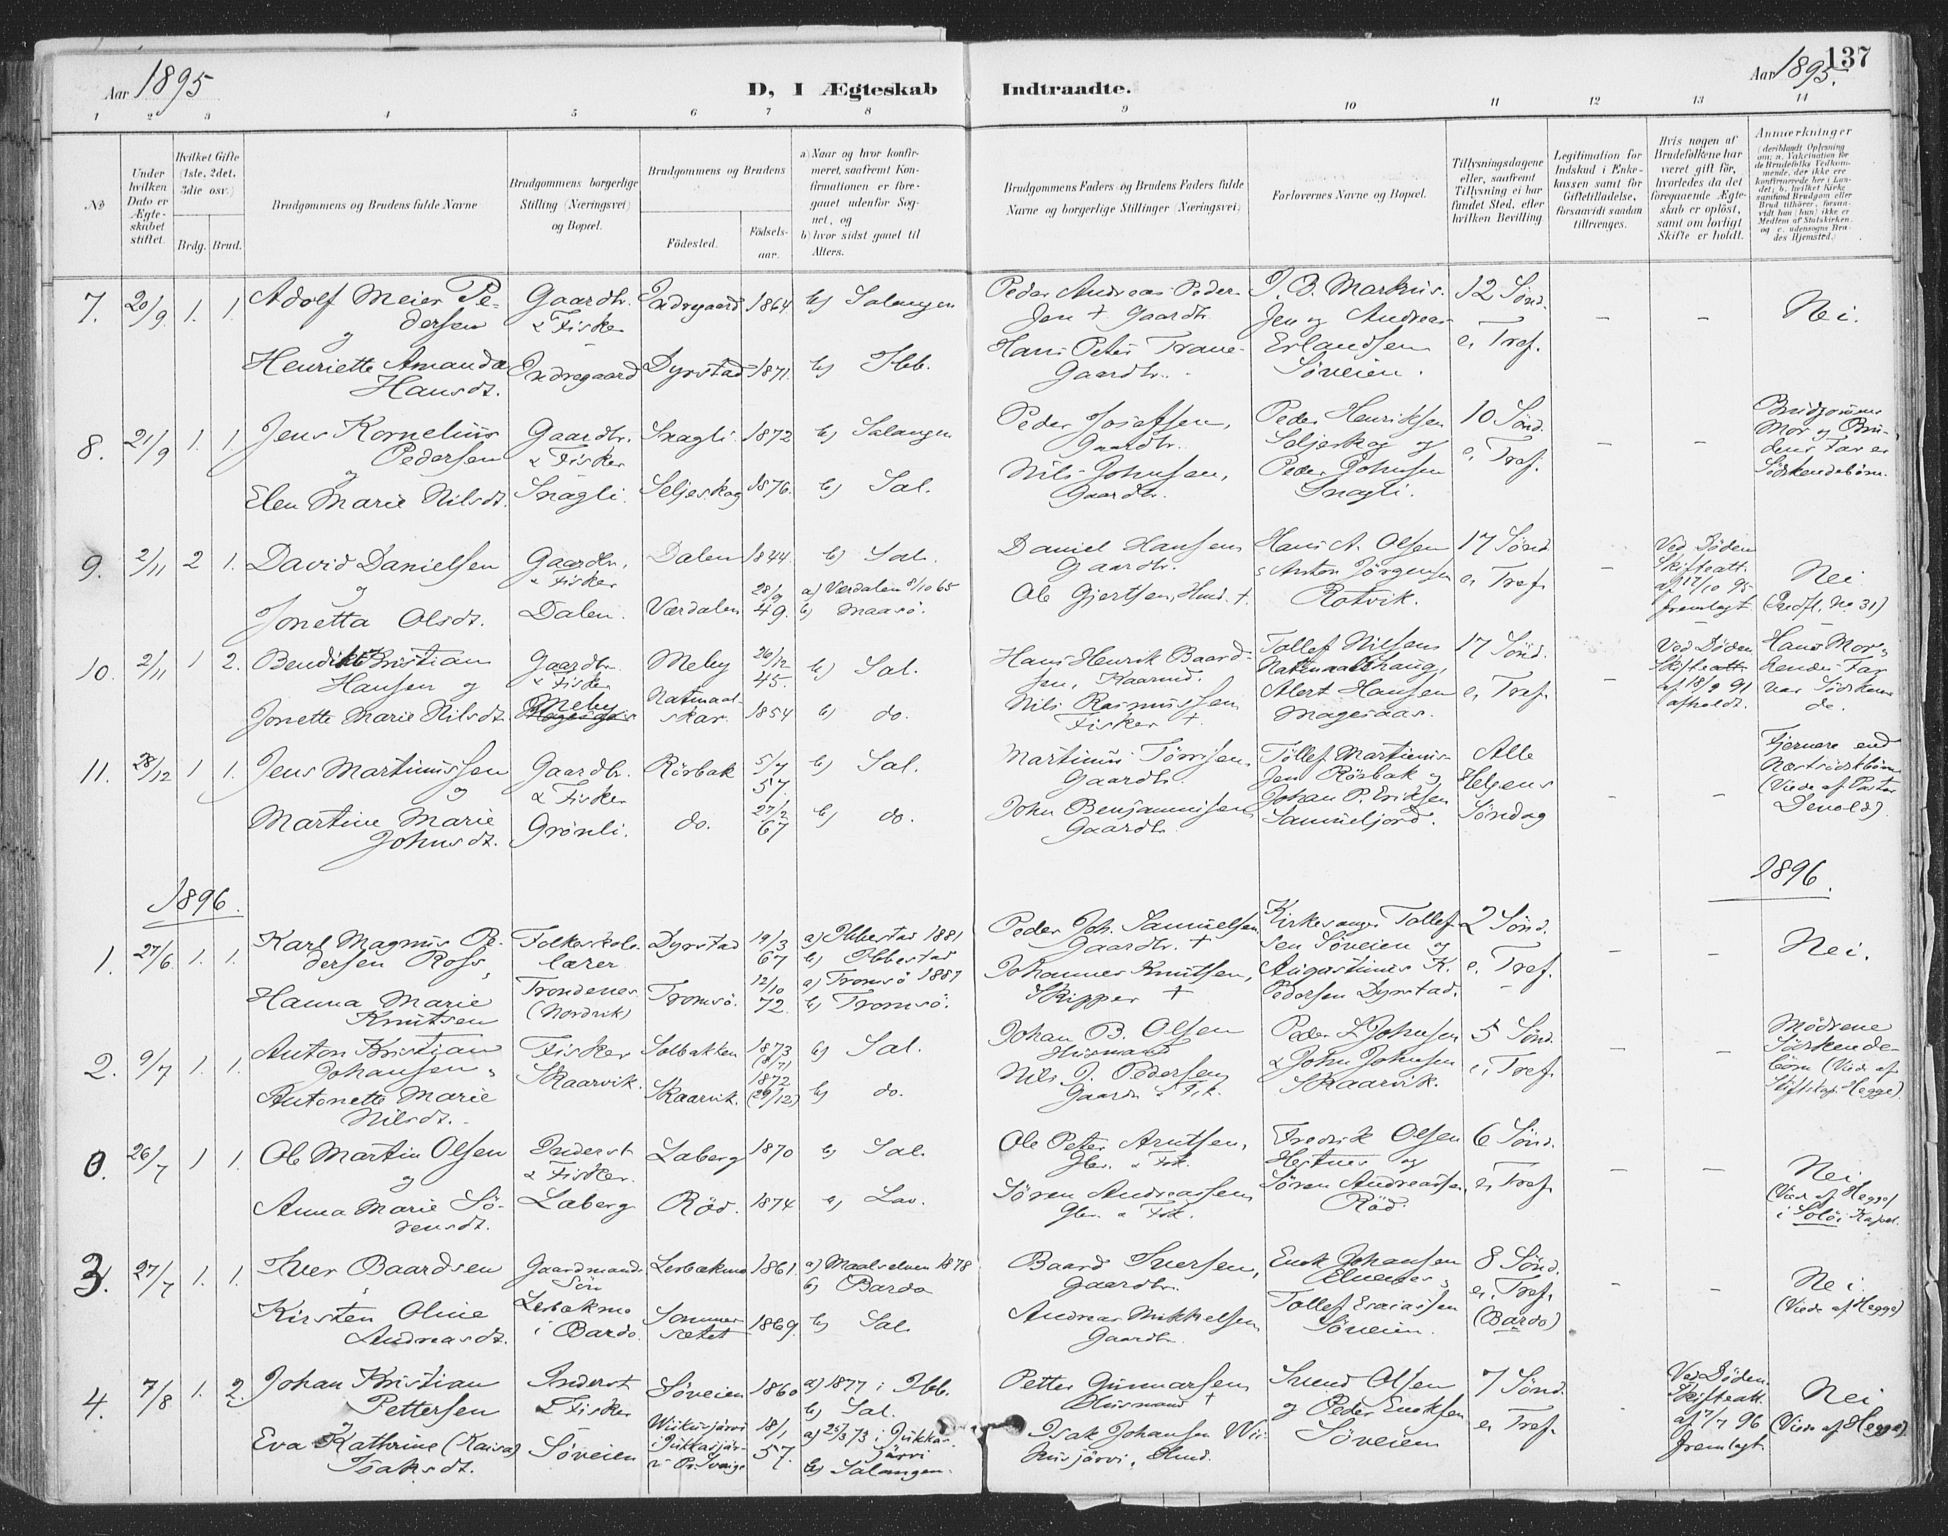 Aar 1895
D, I Ægteskab Indtraadte.
Aar 1895.
137
1 2 3 4 5 6 7 8 9 10 11 12 13 14
№
Under hvilken Dato er Ægteskabet stiftet.
Hvilket Gifte (1ste, 2det, 3die osv.)
Brdg. Brud.
Brudgommens og Brudens fulde Navne
Brudgommens borgerlige Stilling (Næringsvei) og Bopæl.
Brudgommens og Brudens
Fødested.
Fødselsaar.
a) Naar og hvor konfirmeret, saafremt Konfirmationen er foregaaet udenfor Sognet, og
b) hvor sidst gaaet til Alters.
Brudgommens Faders og Brudens Faders fulde Navne og borgerlige Stillinger (Næringsvei)
Forlovernes Navne og Bopæl.
Tillysningsdagene eller, saafremt Tillysning ei har fundet Sted, efter hvilken Bevilling
Legitimation for Indskud i Enkekassen samt for Giftetilladelse, forsaavidt saadan tiltrænges.
Hvis nogen af Brudefolkene har været gift før, hvorledes da det foregaaende Ægteskab er opløst, samt om lovligt Skifte er holdt.
Anmerkninger
7. 20/9 1. 1. Adolf Meier Pedersen Gaardbr. & Fisker Indregaard 1864 b) Salangen Peder Andreas Pedersen † Gaardbr. J. B. Markussen og Andreas 12 Sønd. – – Nei.
og Henriette Amanda Hansdt. Indregaard Dyrstad 1871. b) Ibb. Hans Peter Trane Gaardbr. Erlandsen Søveien. e. Tref.
8. 21/9 1. 1. Jens Kornelius Pedersen Gaardbr. & Fisker Snagli. 1872 b) Salangen Peder Josefsen, Gaardbr. Peder Henriksen Seljeskog og 10 Sønd. – – Brudgommens Mor og Brudens Far er Søskendebørn.
og Elen Marie Nilsdt. Snagli. Seljeskog 1876. b) Sal. Nils Johnsen, Gaardbr. Peder Johnsen Snagli. e. Tref.
9. 2/11 2 1. David Danielsen Gaardbr. & Fisker Dalen 1844 b) Sal. Daniel Hansen Gaardbr. Hans A. Olsen 17 Sønd. – Ved Døden Skifteatt. af 17/10 95 fremlagt. Nei (Indfl. No 31)
og Jonetta Olsdt. Dalen. Værdalen 28/9 49. a) Værdalen 8/10 65 b) Maasø. Ole Gjertsen, Husm. † & Anton Jørgensen Rotvik. e. Tref.
10. 2/11 1 2. Benedikt Kristian Hansen og Gaardbr. & Fisker Meby 26/12 45. b) Sal. Hans Henrik Baardsen, Tollef Nilsen 17 Sønd. – Ved Døden Skifteatt. af 18/9 91 afholdt. Hans Mor, hendes Far var Søskende.
Jonette Marie Nilsdt. Meby Natmaalskar. 1854 b) do. Nils Rasmussen Fisker † Alert Hansen Magesaas. e. Tref.
11. 28/12 1 1. Jens Martinussen Gaardbr. & Fisker Rørbak 5/7 57. b) Sal. Martinus Tørrisen, Gaardbr. Tollef Martinussen Rørbak og Alle Helgens Søndag – – Fjernere end Næstsødskbørn (Viede af Pastor Devold).
og Martine Marie Johnsdt. Grønli. do. 27/2 67 b) do. John Benjaminsen Gaardbr. Johan P. Eriksen Sammelfjord.
1896.
1896.
1. 27/6 1. 1. Karl Magnus Pedersen Ross, Folkeskolelærer Dyrstad 19/3 67 a) Ibbestad 1881 b) Ibbestad Peder Joh. Samuelsen Gaardbr. † Kirkesanger Tollefsen Søveien og 2 Sønd. – – Nei.
Hanna Marie Knutsen Trondenes (Nordvik) Tromsø. 12/10 72. a) Tromsø 1887 b) Tromsø. Johannes Knutsen, Skipper † Augustinus K. Pedersen Dyrstad. e. Tref.
2. 9/7 1. 1. Anton Kristian Johansen, Fisker Solbakken 1873 b) Sal. Johan B. Olsen Husmand Peder L. Johnsen 5 Sønd. – – Mødrene Søskendebørn (Viede af Stiftskap. Hegge).
Antonette Marie Nilsdt. Skaarvik. Skaarvik. 1872 (29/12) b) do. Nils J. Pedersen Gaardbr. & Fisk. & John Johnsen Skaarvik. e. Tref.
0. 26/7 1 1. Ole Martin Olsen Inderst & Fisker Laberg 1870 b) Sal. Ole Peter Arntsen, Gbr. & Fisk. Fredrik Olsen Hestnes og 6 Sønd. – – Nei (Viede af Hegge i Solø Kapel.
og Anna Marie Sørensdt. Laberg Rød. 1874 a) Lav. Søren Andreassen Gbr. & Fisk. Søren Andreassen, Rød. e. Tref.
3. 27/7 1. 1. Iver Baardsen Gaardmands Søn Lerbakmo 1861. a) Maalselven 1878 b) Bardo Baard Iversen, Gaardbr. Enok Johansen Elvenes, 8 Sønd. – – Nei (Viede af Hegge)
Kirsten Oline Andreasdt. Lerbakmo i Bardo. Sommersætet 1869. b) Sal. Andreas Mikkelsen Gaardbr. Tollef Esaiassen Søveien. e. Tref. (Bardo)
4. 7/8 1. 2. Johan Kristian Pettersen Inderst & Fisker Søveien 1860 a) 1877 i Ibb. b) Sal. Petter Gunnarsen Husmand † Svend Olsen 7 Sønd. – Ved Døden. Skifteatt. af 7/7 96 fremlagt. Nei (Viede af Hegge)
og Eva Kathrine (Kaisa) Isaksdt. Søveien Wiikusjærvi i Jukkasjærvi Pr. Sverige 18/1 57. a) 25/3 73 i Jukkasjärvi b) Salangen. Isak Johansen Wiikusjärvi, Husm. og Peder Enoksen Søveien e. Tref.